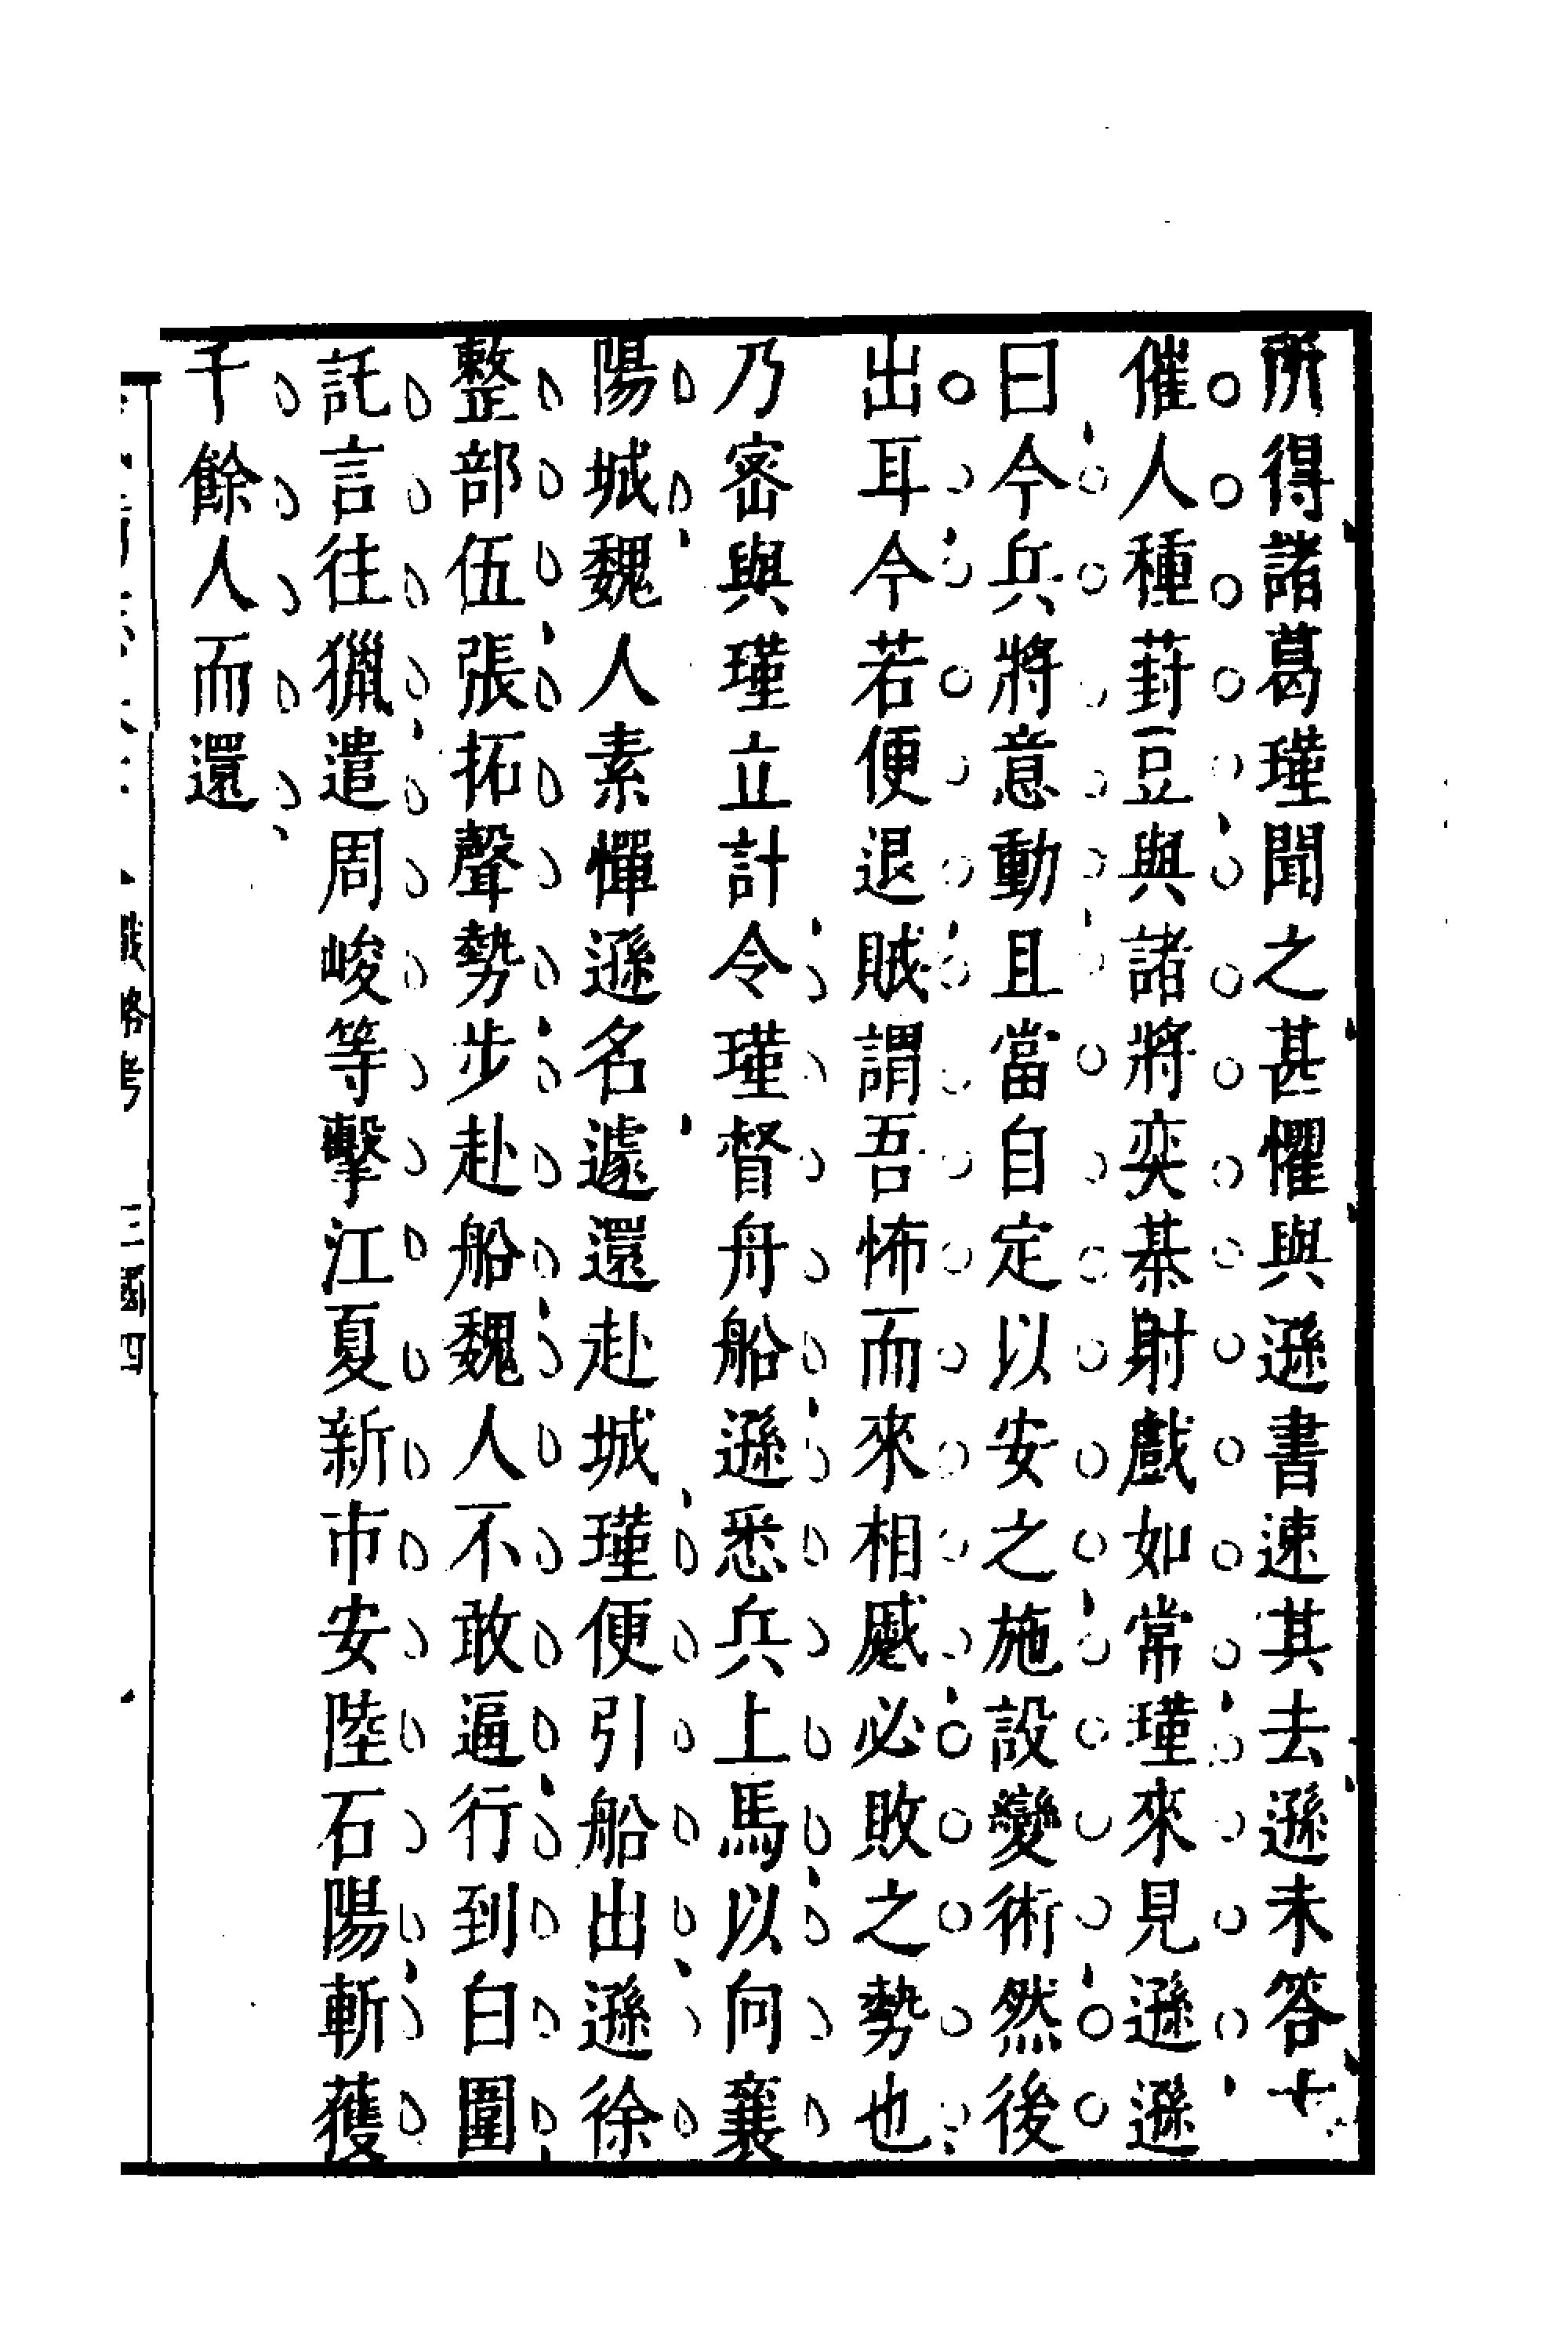 所得諸葛瑾聞之甚懼與遜書速其去遜未答
催人種葑豆與諸將奕棊射戲如常瑾來見遜遜
曰今兵將意動且當自定以安之施設變術然後
出耳今若便退賊謂吾怖而來相蹙必敗之勢也
乃密與瑾立計令瑾督舟船遜悉兵上馬以向襄
陽城魏人素憚遜名遽還赴城瑾便引船出遜徐
整部伍張拓聲勢步赴船魏人不敢逼行到白圍
託言往獵遣周峻等擊江夏新市安陸石陽斬獲
千餘人而還
戰略考 三國四